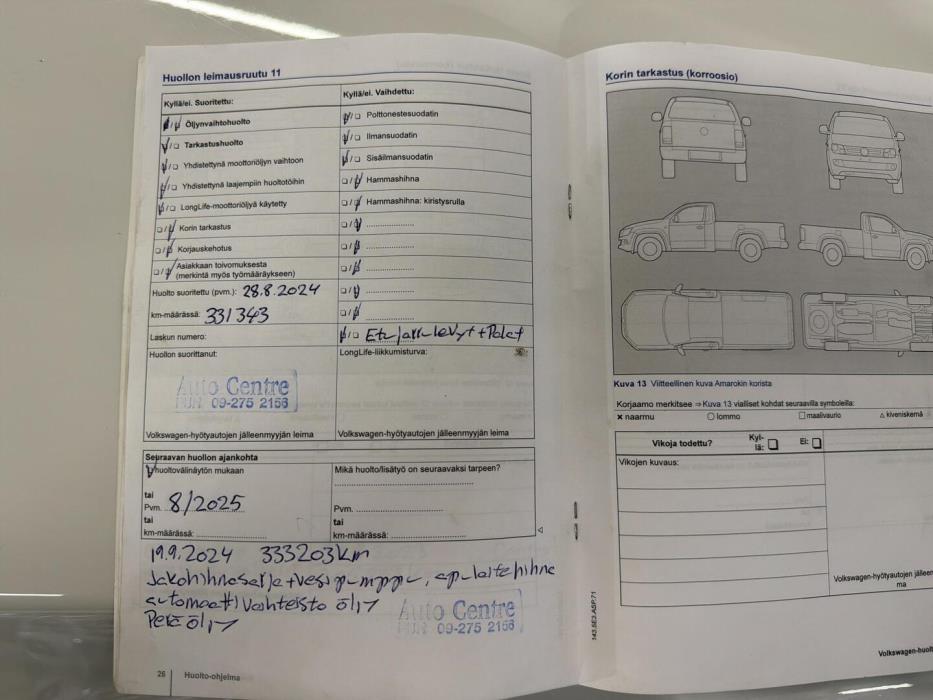 Huollon leimausruutu 11
Kyllä/ei. Suoritettu:
Öljynvaihtohuolto
Tarkastushuolto
Yhdistettynä moottoriöljyn vaihtoon
Yhdistettynä laajempiin huoltotöihin
LongLife-moottoriöljyä käytetty
Korin tarkastus
Korjauskehotus
Asiakkaan toivomuksesta
(merkintä myös työmääräykseen)
Huolto suoritettu (pvm.): 28.8.2024
km-määrässä: 331343
Laskun numero:
Huollon suorittanut:
Auto Centre
PUH. 09-275 2156
Volkswagen-hyötyautojen jälleenmyyjän leima
Kyllä/ei. Vaihdettu:
Polttonestesuodatin
Ilmansuodatin
Sisäilmansuodatin
Hammashihna
Hammashihna: kiristysrulla
Etujarrulevyt + Palat
LongLife-liikkumisturva:
Volkswagen-hyötyautojen jälleenmyyjän leima
Seuraavan huollon ajankohta
huoltovälinäytön mukaan
tai
Pvm. 8/2025
tai
km-määrässä:
Mikä huolto/lisätyö on seuraavaksi tarpeen?
Pvm.
tai
km-määrässä:
19.9.2024 333203km
Jakohihnasarja + vesipumppu, apulaitehihna
automaattivaihteisto öljy
Perä öljy
Auto Centre
PUH. 09-275 2156
26 Huolto-ohjelma
Korin tarkastus (korroosio)
Kuva 13 Viitteellinen kuva Amarokin korista
Korjaamo merkitsee ⇒ Kuva 13 vialliset kohdat seuraavilla symboleilla:
× naarmu ○ lommo □ maalivaurio △ kiveniskemä
Vikoja todettu? Kyl-
lä: Ei:
Vikojen kuvaus:
Volkswagen-hyötyautojen jälleen
ma
143.5E3.ASP.71
Volkswagen-huol